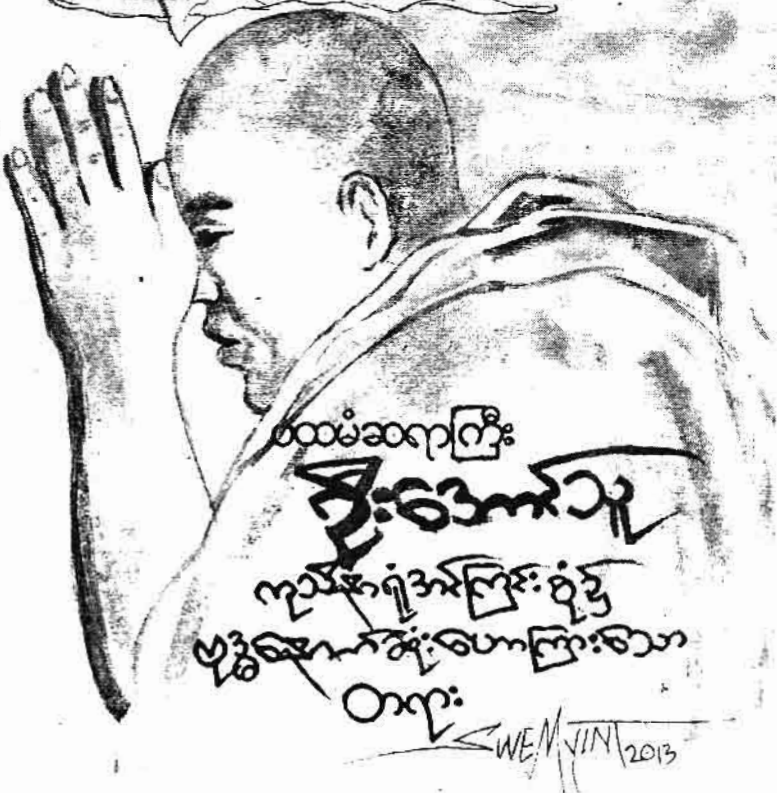 ပထမံဆရာကြီး
ဦးအောင်သူ
ကုသိနာရုံအင်ကြင်းစုံ၌
ဗုဒ္ဓနောက်ဆုံးဟောကြားသော
တရား
SWEMYINT 2013